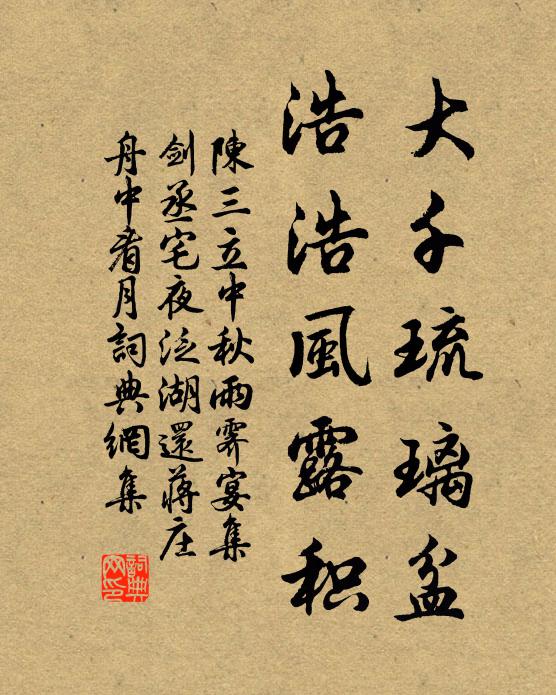 大千琉璃盆
浩浩風露积
陳三立中秋雨霽宴集
剑丞宅夜泛湖還蔣庄
舟中看月詞典網集
詞典网印